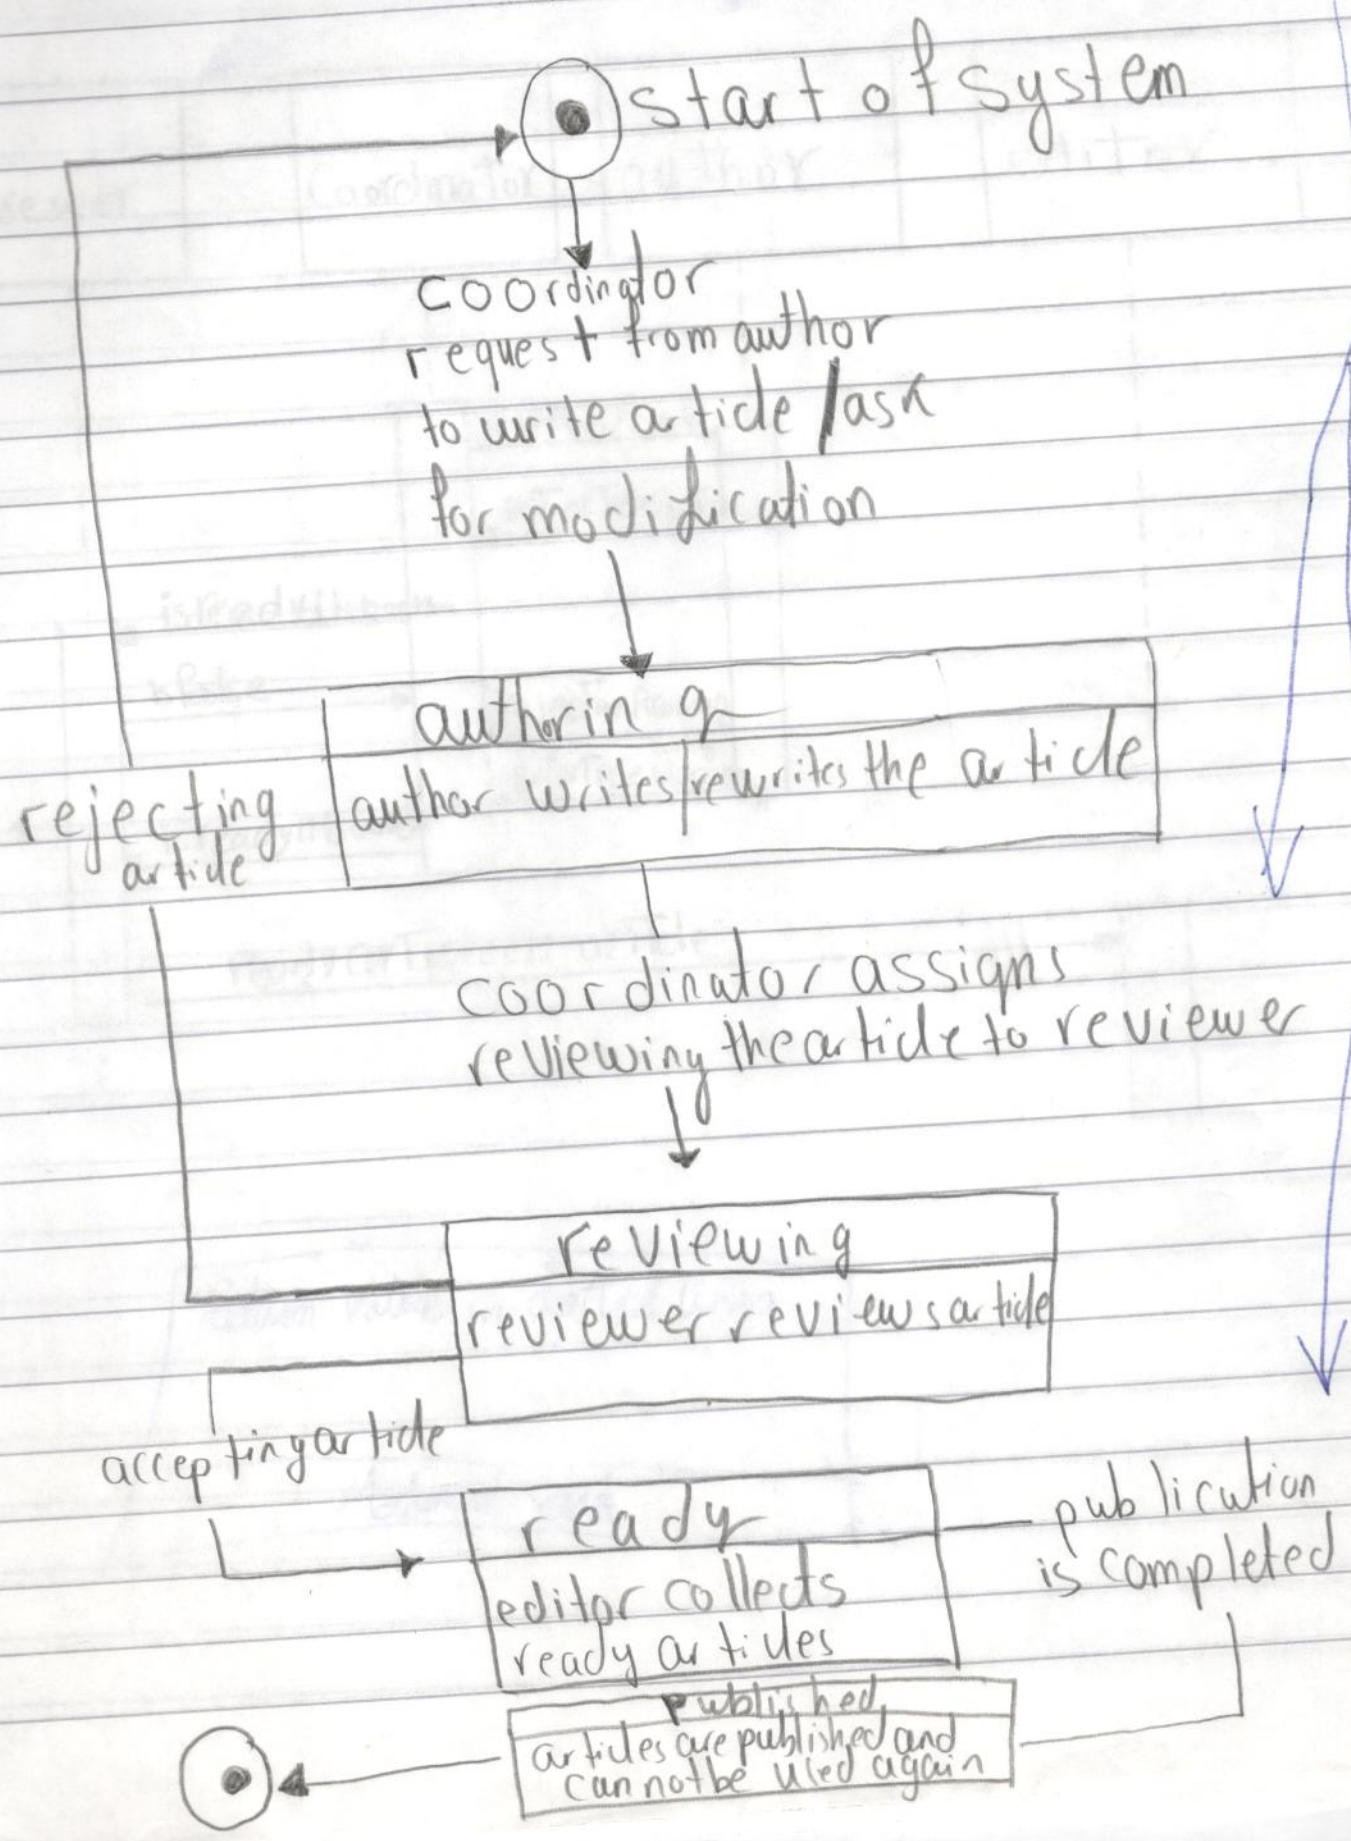 start of system
coordinator
request from author
to write article / ask
for modification
authoring
author writes/rewrites the article
rejecting
article
coordinator assigns
reviewing the article to reviewer
reviewing
reviewer reviews article
accepting article
ready
editor collects
ready articles
publication
is completed
published
articles are published and
can not be used again